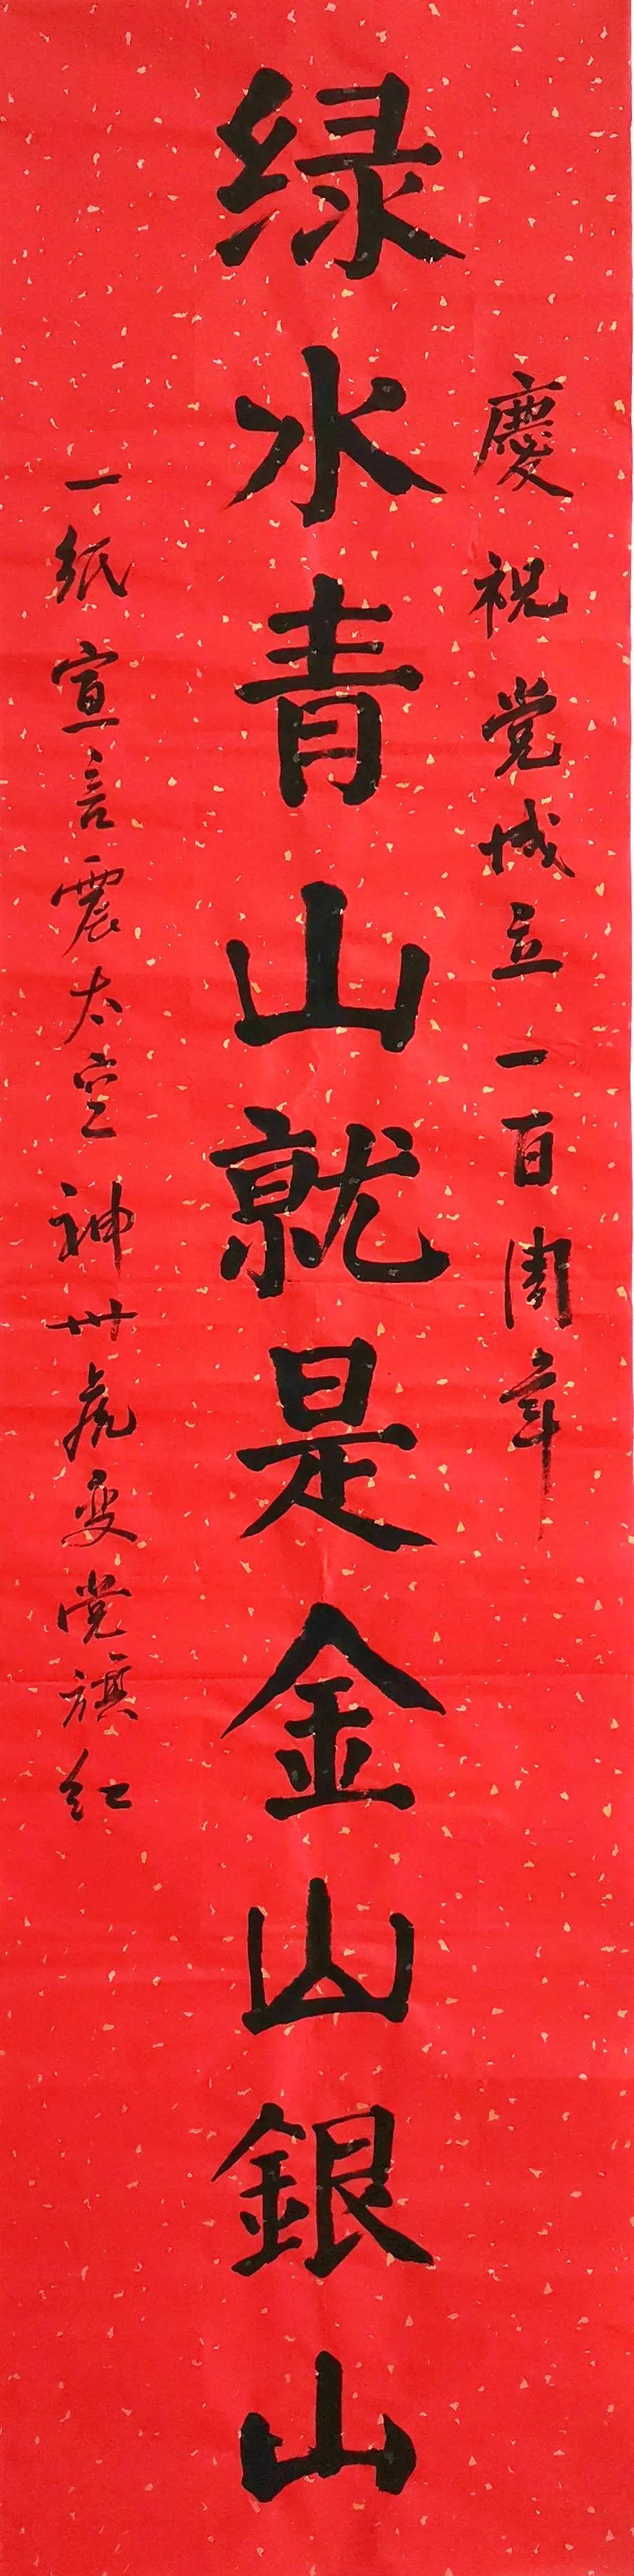 慶祝党成立一百周年
绿水青山就是金山銀山
一纸宣言震太空神州虎变党旗红